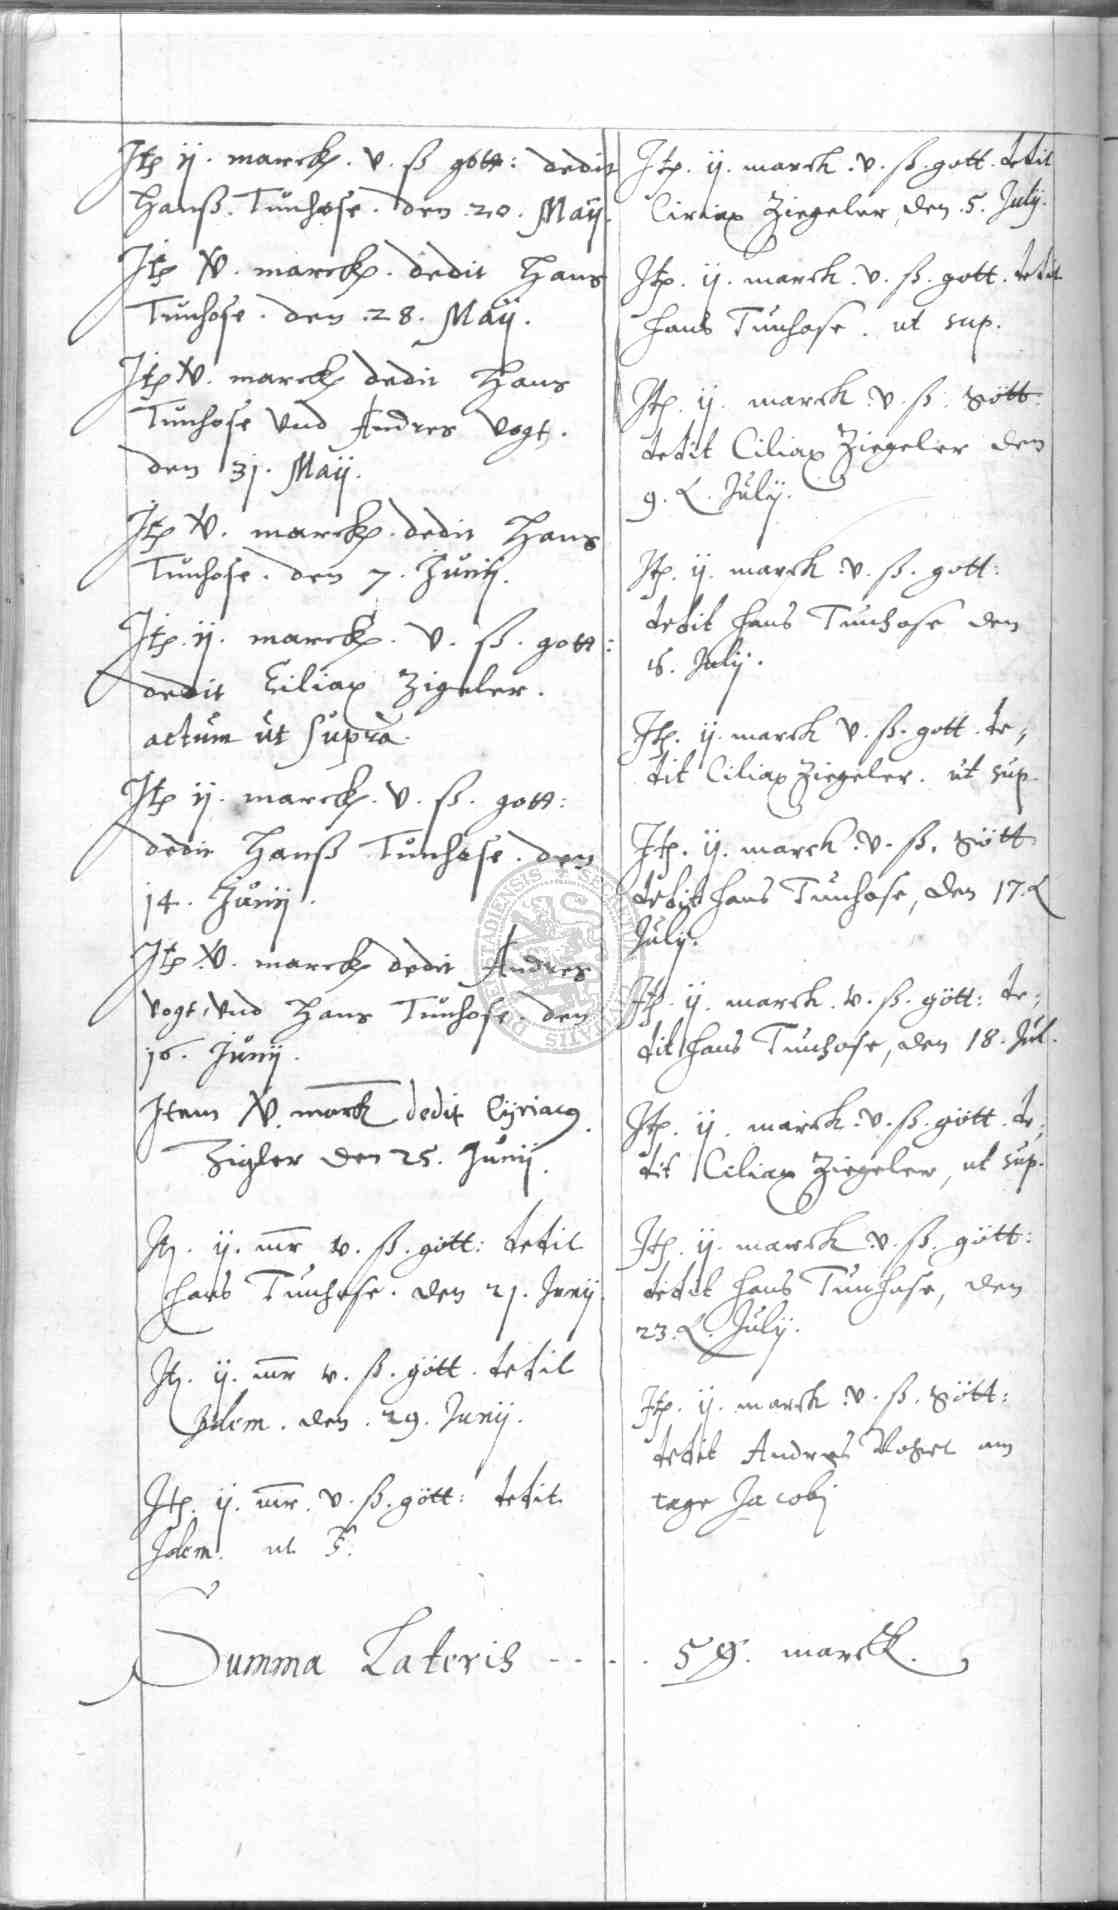 Itp ij. marck. v. ß gott: dedit
Hanß. Tunhose. den .20. Maij.
Itp XV. marck. dedit Hans
Tunhose. den .28. Maij.
Itp XV. marck dedit Hans
Tunhose Vnd Andres Vogt.
den 31. Maij.
Itp XV. marck. dedit Hans
Tunhose. den 7. Junij.
Itp. ij. marck. v. ß. gott:
dedit Ciliax Zigeler.
actum ut Supra.
Itp ij. marck. v. ß. gott:
dedit Hanß Tunhose. den
14. Junij.
Itp XV. marck dedit Andres
Vogt, Vnd Hans Tunhose. den
16. Junij.
Item XV. marck dedit Cyriacus
Zigler den 25. Junij.
Itp. ij. mr v. ß. gött: dedit
Hans Tunhose. den 21. Junij
Itp. ij. mr v. ß. gött. dedit
Idem. den .29. Junij.
Itp. ij. mr. v. ß. gött: dedit
Idem. ut S.
Itp. ij. marck .v. ß. gott. dedit
Ciriax Ziegeler, den .5. Julij.
Itp. ij. marck .v. ß. gott. dedit
Hans Tunhose. ut sup.
Itp. ij. marck .v. ß. gött.
dedit Ciliax Ziegeler den
9. Julij.
Itp. ij. marck .v. ß. gott:
dedit Hans Tunhose den
16. Julij.
Itp. ij. marck v. ß. gott. de,,
dit Ciliax Ziegeler. ut sup.
Itp. ij. marck .v. ß. gött
dedit Hans Tunhose, den 17.
Julij.
Itp. ij. marck. v. ß. gött: de,,
dit Hans Tunhose, den 18. Jul.
Itp. ij. marck .v. ß. gött. de,,
dit Ciliax Ziegeler, ut sup.
Itp. ij. marck .v. ß. gött:
dedit Hans Tunhose, den
23. Julij.
Itp. ij. marck .v. ß. gött:
dedit Andres am
tage Jacobi
Summa Lateris - - . . 59. marck.